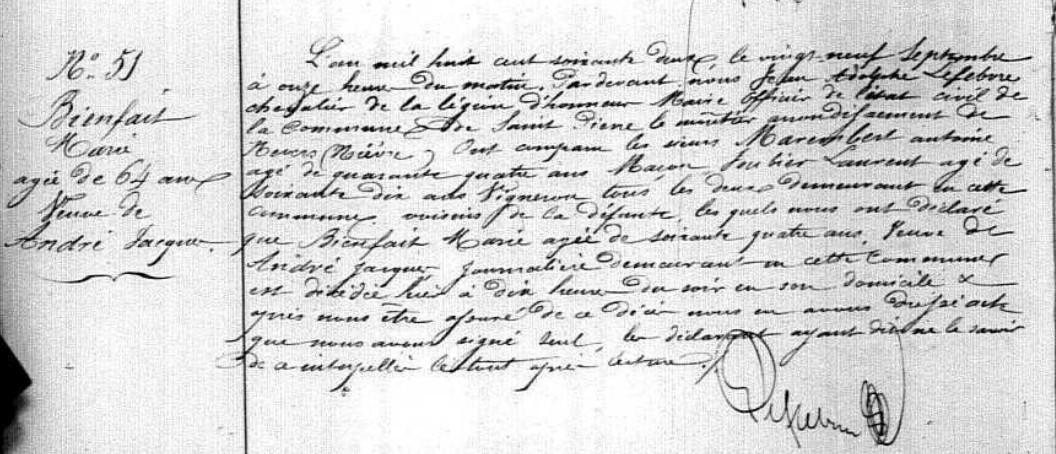 N° 51
Bienfait
Marie
agée de 64 ans
Veuve de
André Jacques.
L'an mil huit cent soixante deux, le vingt-neuf Septembre
à onze heure du matin, Pardevant nous Jean Adolphe Lefebvre
chevalier de la légion d'honneur Maire officier de l'état civil de
la Commune de Saint Pierre le moûtier arrondissement de
Nevers (Nièvre) Ont comparu les sieurs Marembert antoine
agé de quarante quatre ans Maçon, Laurent agé de
soixante dix ans Vigneron tous les deux demeurant en cette
commune, voisins de la défunte, les quels nous ont déclaré
que Bienfait Marie agée de soixante quatre ans, Veuve de
André Jacques journalière demeurant en cette Commune
est décédée hier à dix heure du soir en son domicile &
après nous être assuré de ce décès nous en avons dressé acte
que nous avons signé seul, les déclarant ayant dit ne le savoir
de ce interpellés le tout après lecture.
Lefebvre